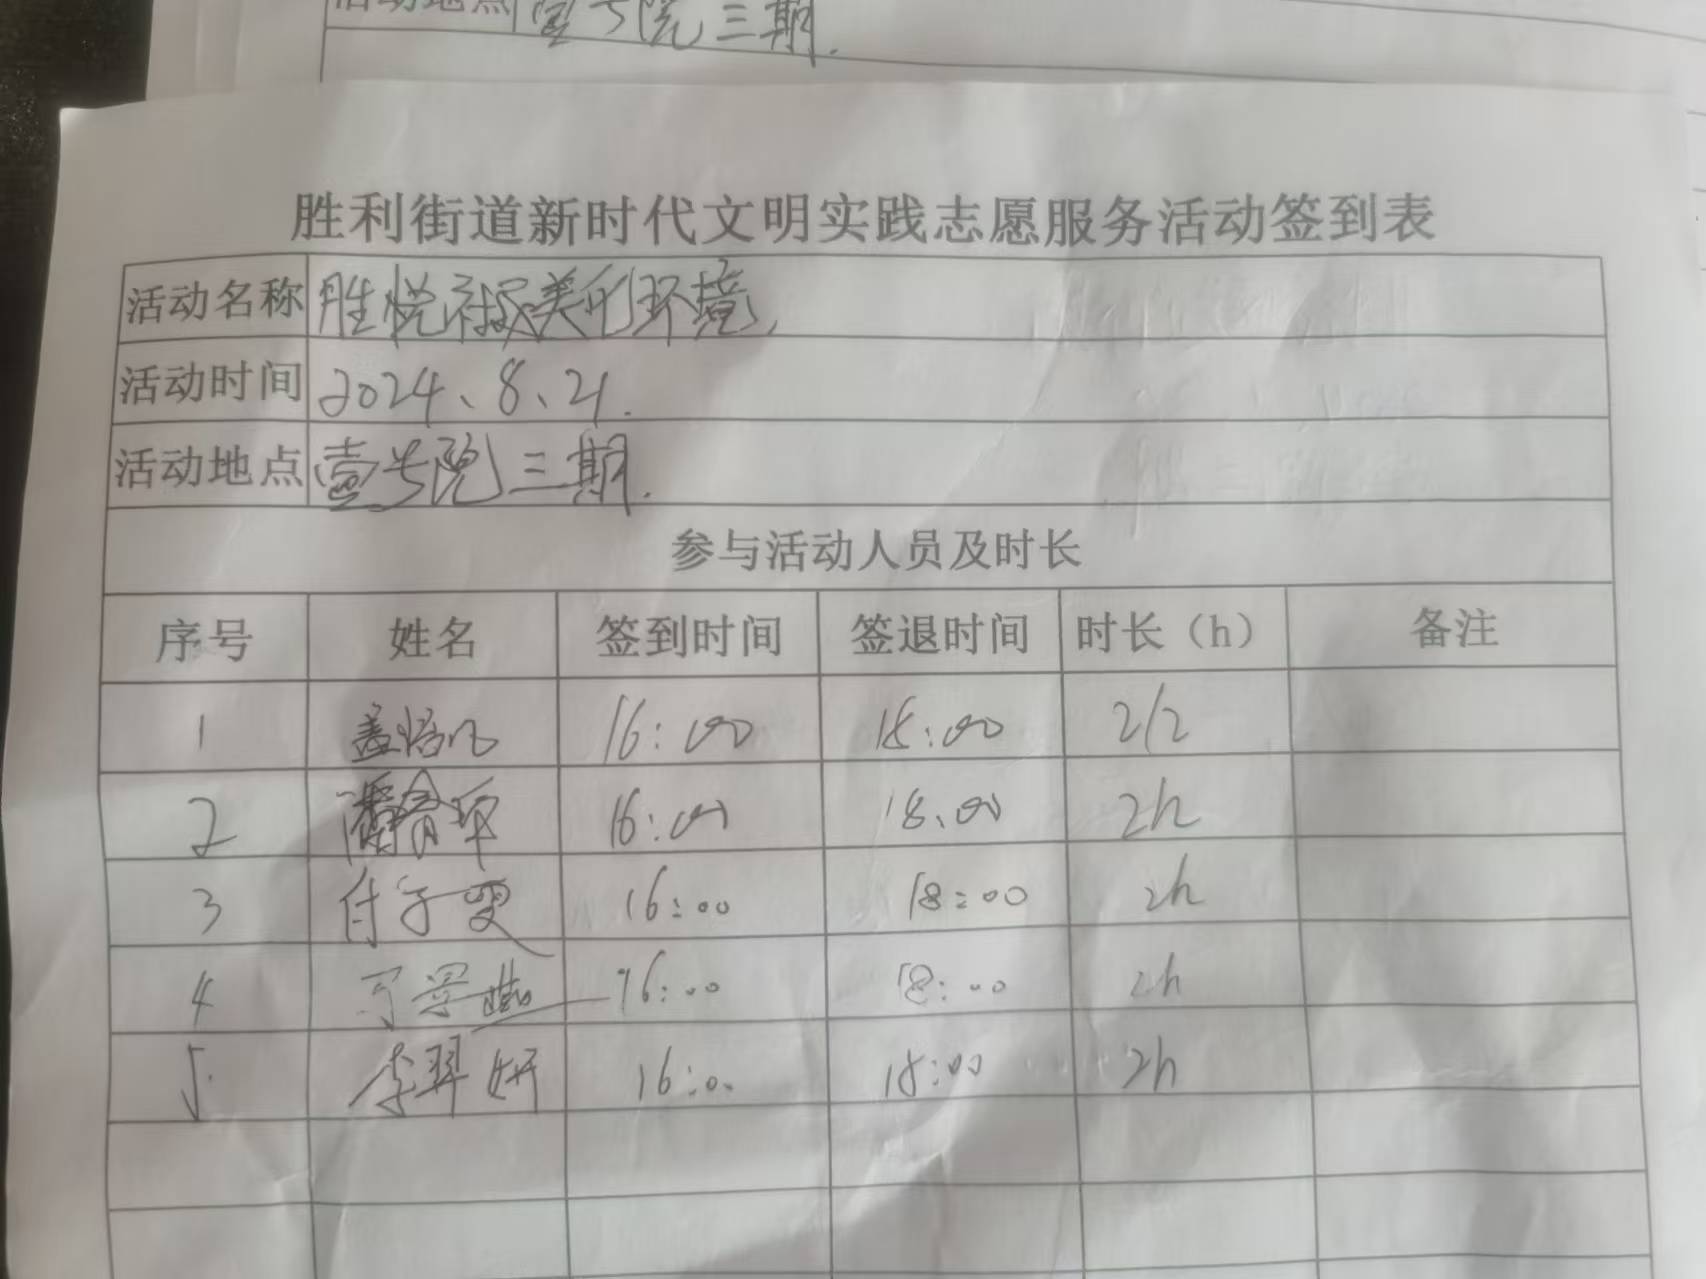 活动地点 壹号院三期.
胜利街道新时代文明实践志愿服务活动签到表
活动名称 胜悦社区美化环境
活动时间 2024、8、21.
活动地点 壹号院三期.
参与活动人员及时长
序号 姓名 签到时间 签退时间 时长（h） 备注
1 盖 16:00 18:00 2h
2 潘 16:00 18:00 2h
3 付子雯 16:00 18:00 2h
4 16:00 18:00 2h
5 李翠妍 16:00 18:00 2h